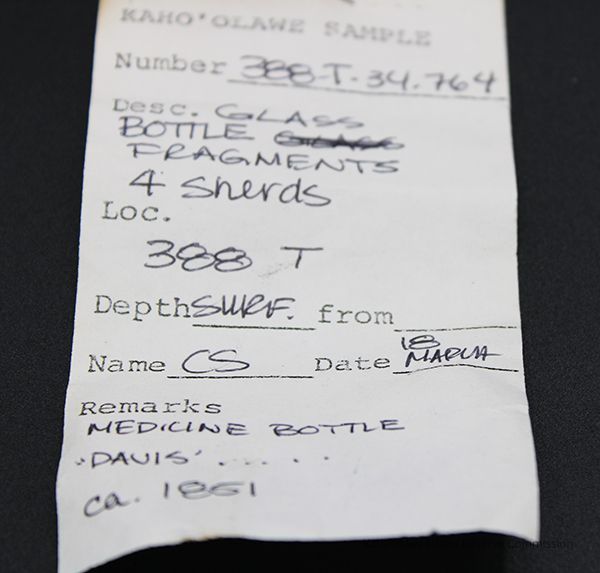 KAHO'OLAWE SAMPLE
Number 388-T-34.764
Desc. GLASS
BOTTLE
FRAGMENTS
4 Sherds
Loc.
388 T
Depth SURF. from
Name CS Date 18 MARCH
Remarks
MEDICINE BOTTLE
'DAVIS' . . . . .
ca. 1861
Commission